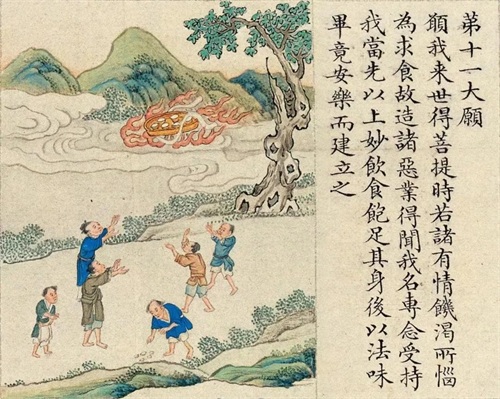 弟十一大願
願我来世得菩提時若諸有情饑渴所惱
為求食故造諸惡業得聞我名專念受持
我當先以上妙飲食飽足其身後以法味
畢竟安樂而建立之